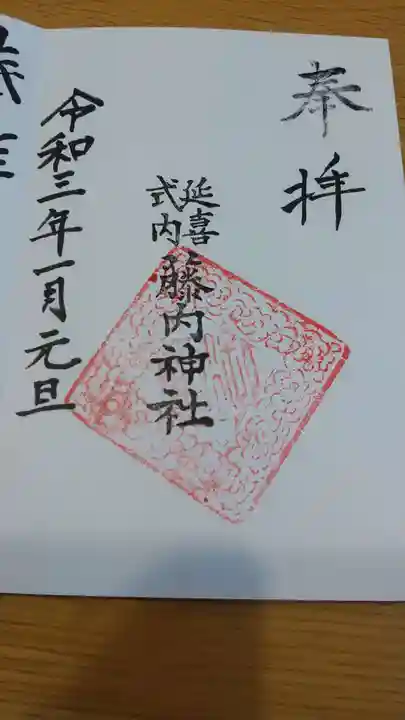 奉拝
延喜
式内
藤内神社
令和三年一月元旦